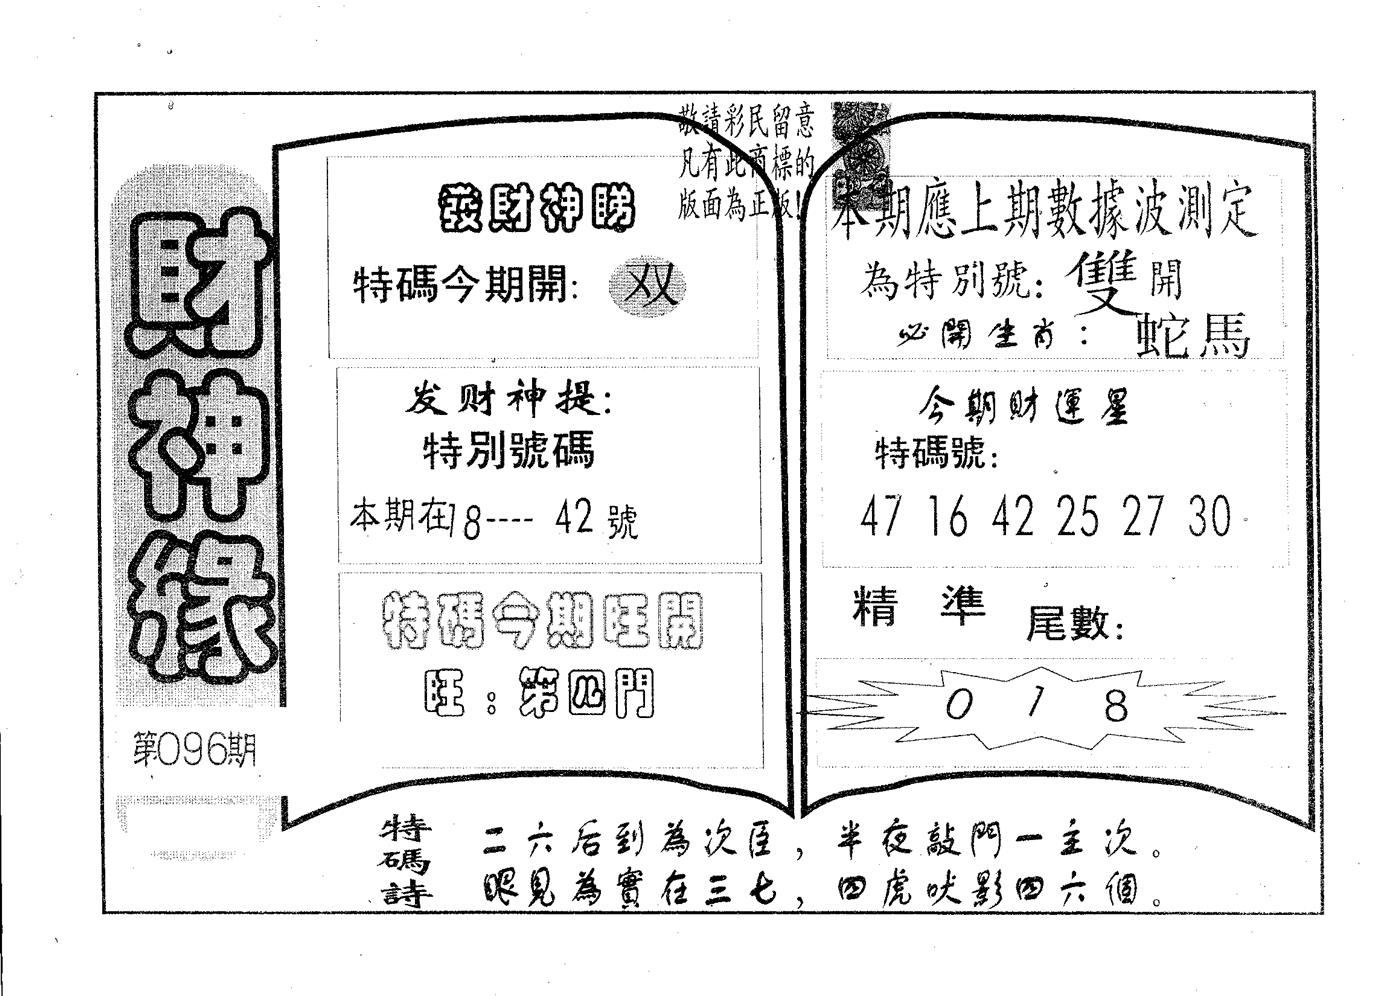 財神緣
第096期
敬請彩民留意
凡有此商標的
版面為正版!
發財神睇
特碼今期開: 双
发财神提:
特別號碼
本期在18---- 42號
特碼今期旺開
旺:第四門
本期應上期數據波測定
為特別號:雙開
必開生肖:蛇馬
今期財運星
特碼號:
47 16 42 25 27 30
精準尾數:
0 1 8
特碼詩
二六后到為次臣,半夜敲門一主次。
眼見為實在三七,四虎吠影四六個。